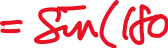 = Sin(180